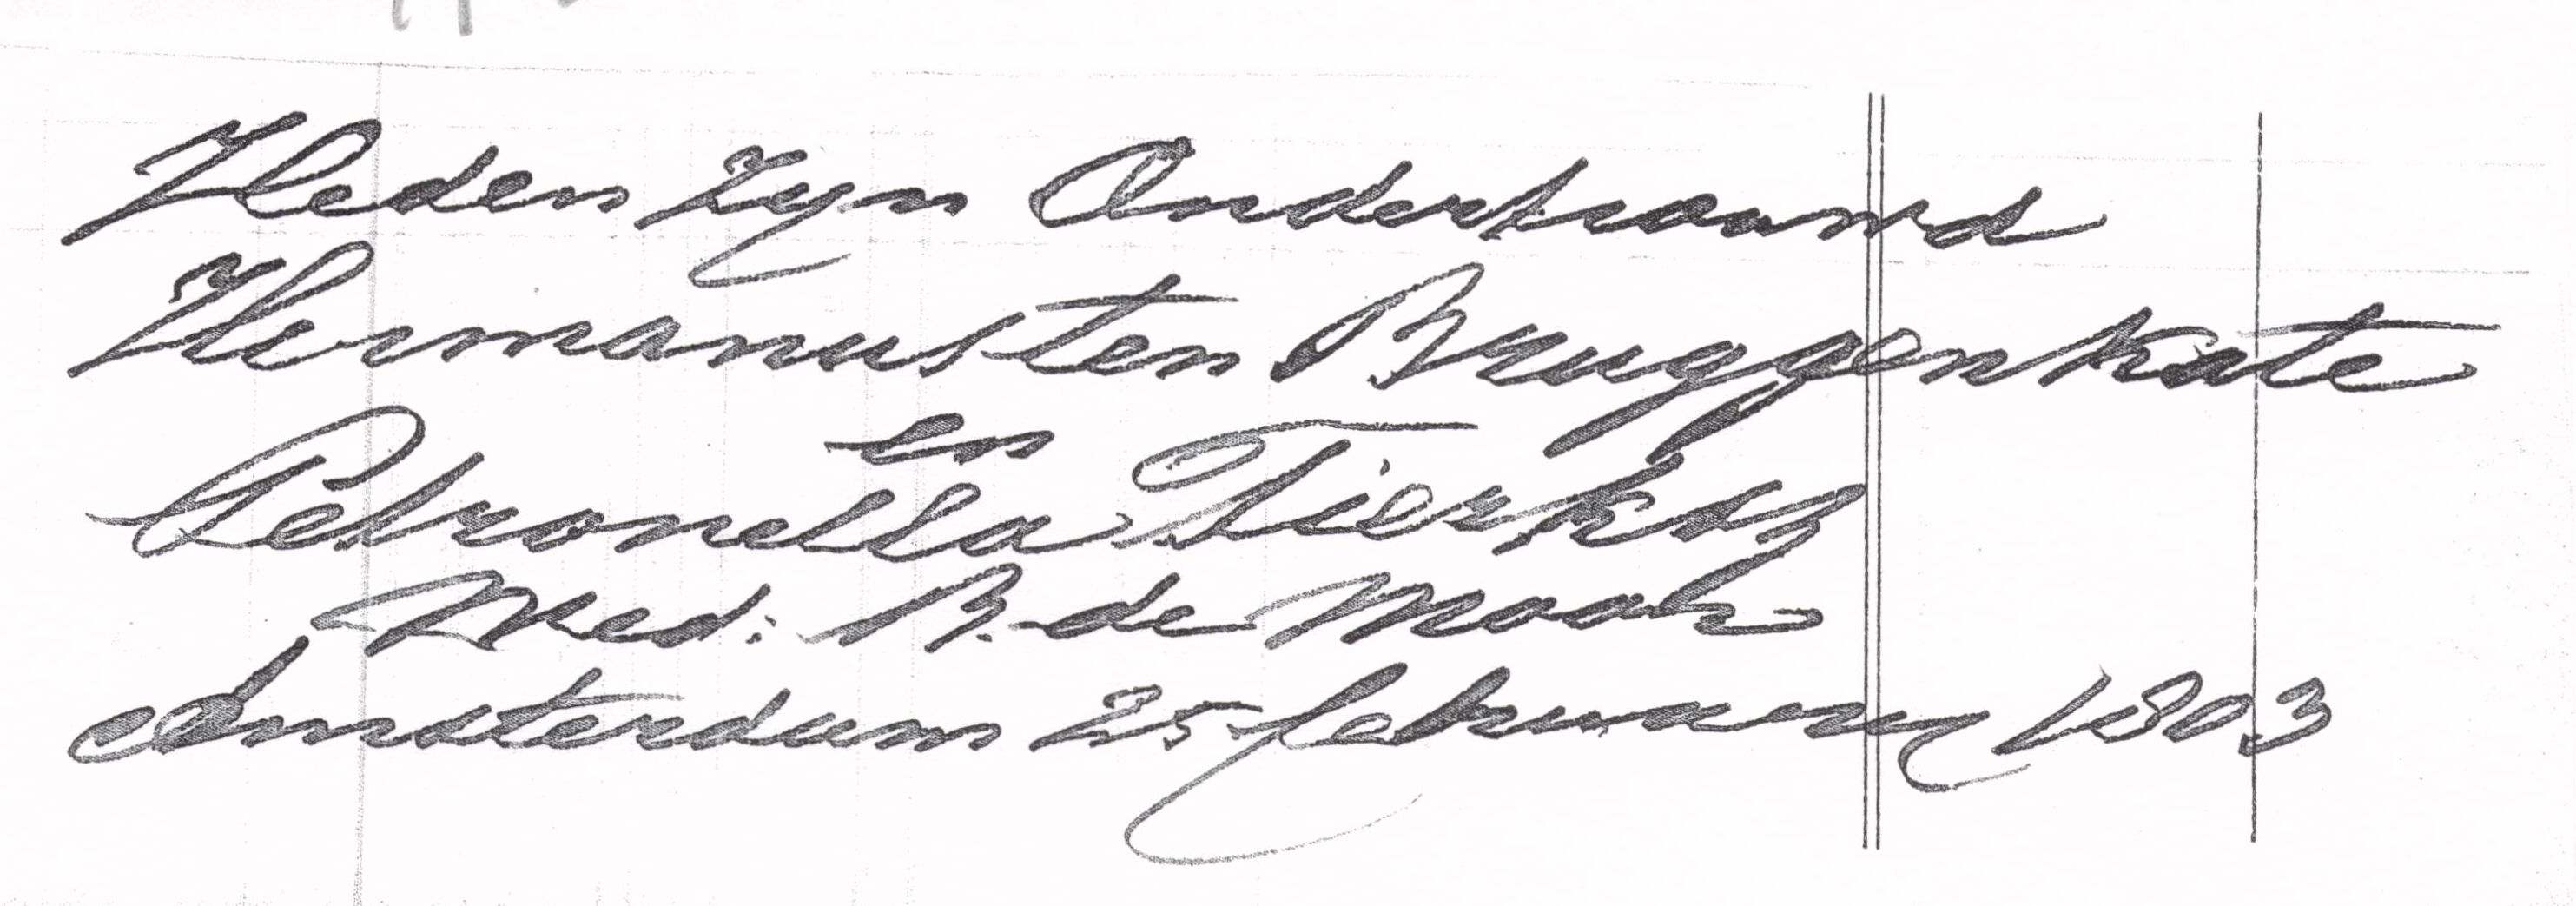 Heden zyn Ondertrouwd
Hermanus ten Bruggenkate
en
Petronella Dierksz
Wed: B. de Moor
Amsterdam 25 february 1803